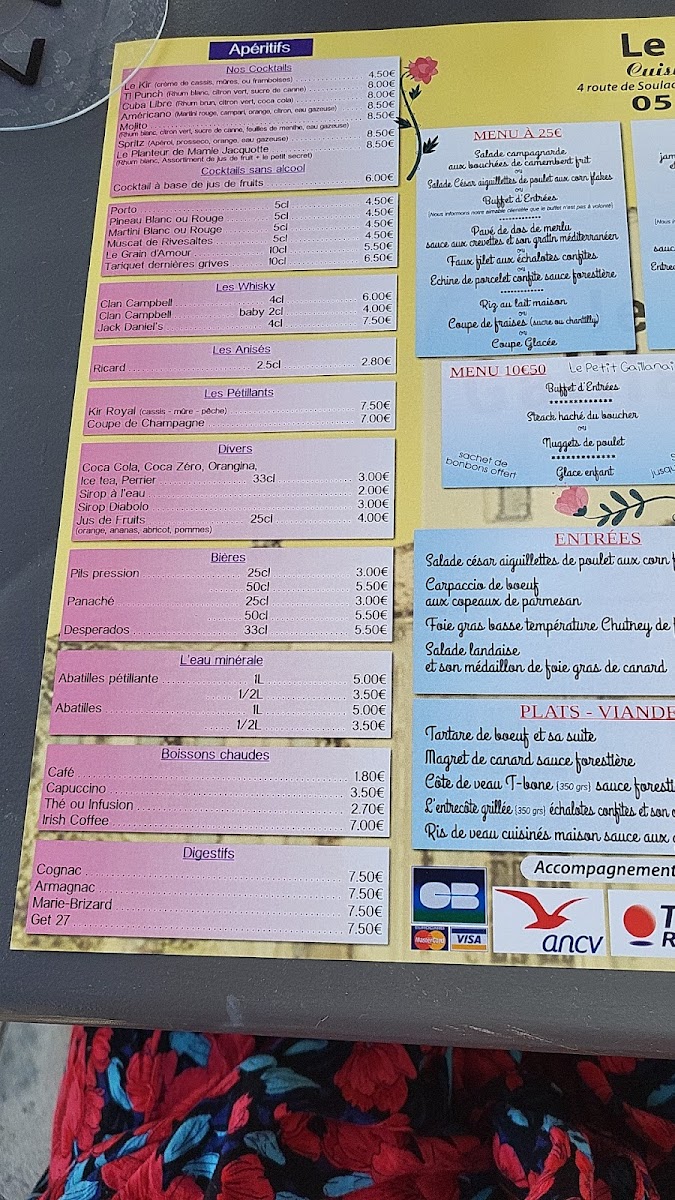 Apéritifs
Nos Cocktails
Le Kir (crème de cassis, mûres, ou framboises) 4.50€
TI Punch (Rhum blanc, citron vert, sucre de canne) 8.00€
Cuba Libre (Rhum brun, citron vert, coca cola) 8.00€
Américano (Martini rouge, campari, orange, citron, eau gazeuse) 8.50€
Mojito 8.50€
(Rhum blanc, citron vert, sucre de canne, feuilles de menthe, eau gazeuse)
Spritz (Apérol, prosseco, orange, eau gazeuse) 8.50€
Le Planteur de Mamie Jacquotte 8.50€
(Rhum blanc, Assortiment de jus de fruit + le petit secret)
Cocktails sans alcool
Cocktail à base de jus de fruits 6.00€
Porto 5cl 4.50€
Pineau Blanc ou Rouge 5cl 4.50€
Martini Blanc ou Rouge 5cl 4.50€
Muscat de Rivesaltes 5cl 4.50€
Le Grain d'Amour 10cl 5.50€
Tariquet dernières grives 10cl 6.50€
Les Whisky
Clan Campbell 4cl 6.00€
Clan Campbell baby 2cl 4.00€
Jack Daniel's 4cl 7.50€
Les Anisés
Ricard 2.5cl 2.80€
Les Pétillants
Kir Royal (cassis - mûre - pêche) 7.50€
Coupe de Champagne 7.00€
Divers
Coca Cola, Coca Zéro, Orangina,
Ice tea, Perrier 33cl 3.00€
Sirop à l'eau 2.00€
Sirop Diabolo 3.00€
Jus de Fruits 25cl 4.00€
(orange, ananas, abricot, pommes)
Bières
Pils pression 25cl 3.00€
50cl 5.50€
Panaché 25cl 3.00€
50cl 5.50€
Desperados 33cl 5.50€
L'eau minérale
Abatilles pétillante 1L 5.00€
1/2L 3.50€
Abatilles 1L 5.00€
1/2L 3.50€
Boissons chaudes
Café 1.80€
Capuccino 3.50€
Thé ou Infusion 2.70€
Irish Coffee 7.00€
Digestifs
Cognac 7.50€
Armagnac 7.50€
Marie-Brizard 7.50€
Get 27 7.50€
Le
Cuis
4 route de Soulac
05
MENU À 25€
Salade campagnarde
aux bouchées de camembert frit
ou
Salade César aiguillettes de poulet aux corn flakes
ou
Buffet d'Entrées
(Nous informons notre aimable clientèle que le buffet n'est pas à volonté)
Pavé de dos de merlu
sauce aux crevettes et son gratin méditerranéen
ou
Faux filet aux échalotes confites
ou
Echine de porcelet confite sauce forestière
Riz au lait maison
ou
Coupe de fraises (sucre ou chantilly)
ou
Coupe Glacée
jam
(Nous i
sauc
Entrec
MENU 10€50 Le Petit Gaillanai
Buffet d'Entrées
Steack haché du boucher
ou
Nuggets de poulet
Glace enfant
sachet de
bonbons offert
jusqu
ENTRÉES
Salade césar aiguillettes de poulet aux corn f
Carpaccio de boeuf
aux copeaux de parmesan
Foie gras basse température Chutney de
Salade landaise
et son médaillon de foie gras de canard
PLATS - VIANDE
Tartare de boeuf et sa suite
Magret de canard sauce forestière
Côte de veau T-bone (350 grs) sauce foresti
L'entrecôte grillée (350 grs) échalotes confites et son
Ris de veau cuisinés maison sauce aux
Accompagnement
CB
EUROCARD
MasterCard
VISA
ancv
T
R